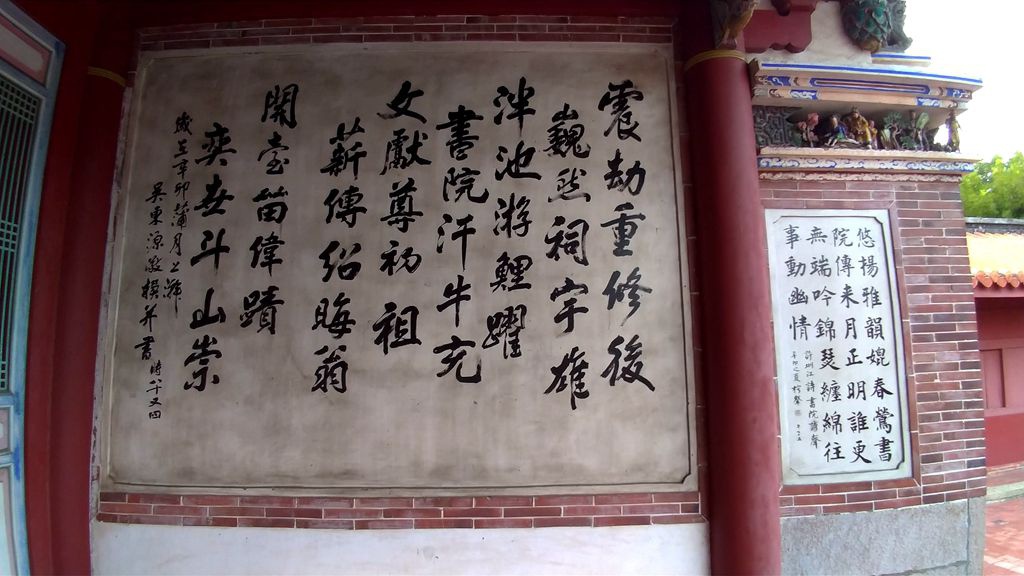 震劫重修後
巍然祠宇雄
泮池游鯉躍
書院汗牛充
文獻尊初祖
薪傳紹晦翁
開臺苗偉蹟
奕世斗山崇
歲在辛卯蒲月上澣
吳東源敬撰并書 時八十又四
悠揚雅韻媲春鶯書
院傳来月正明誰更
無端吟錦瑟纏綿往
事動幽情